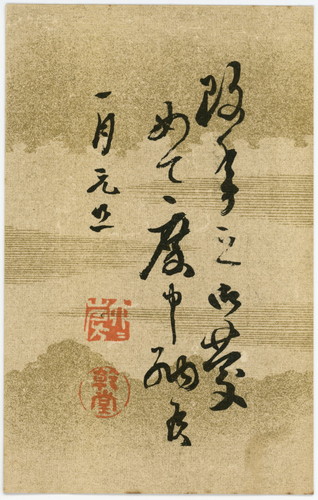 改年之御慶
めて度申納候
一月元旦
乾堂